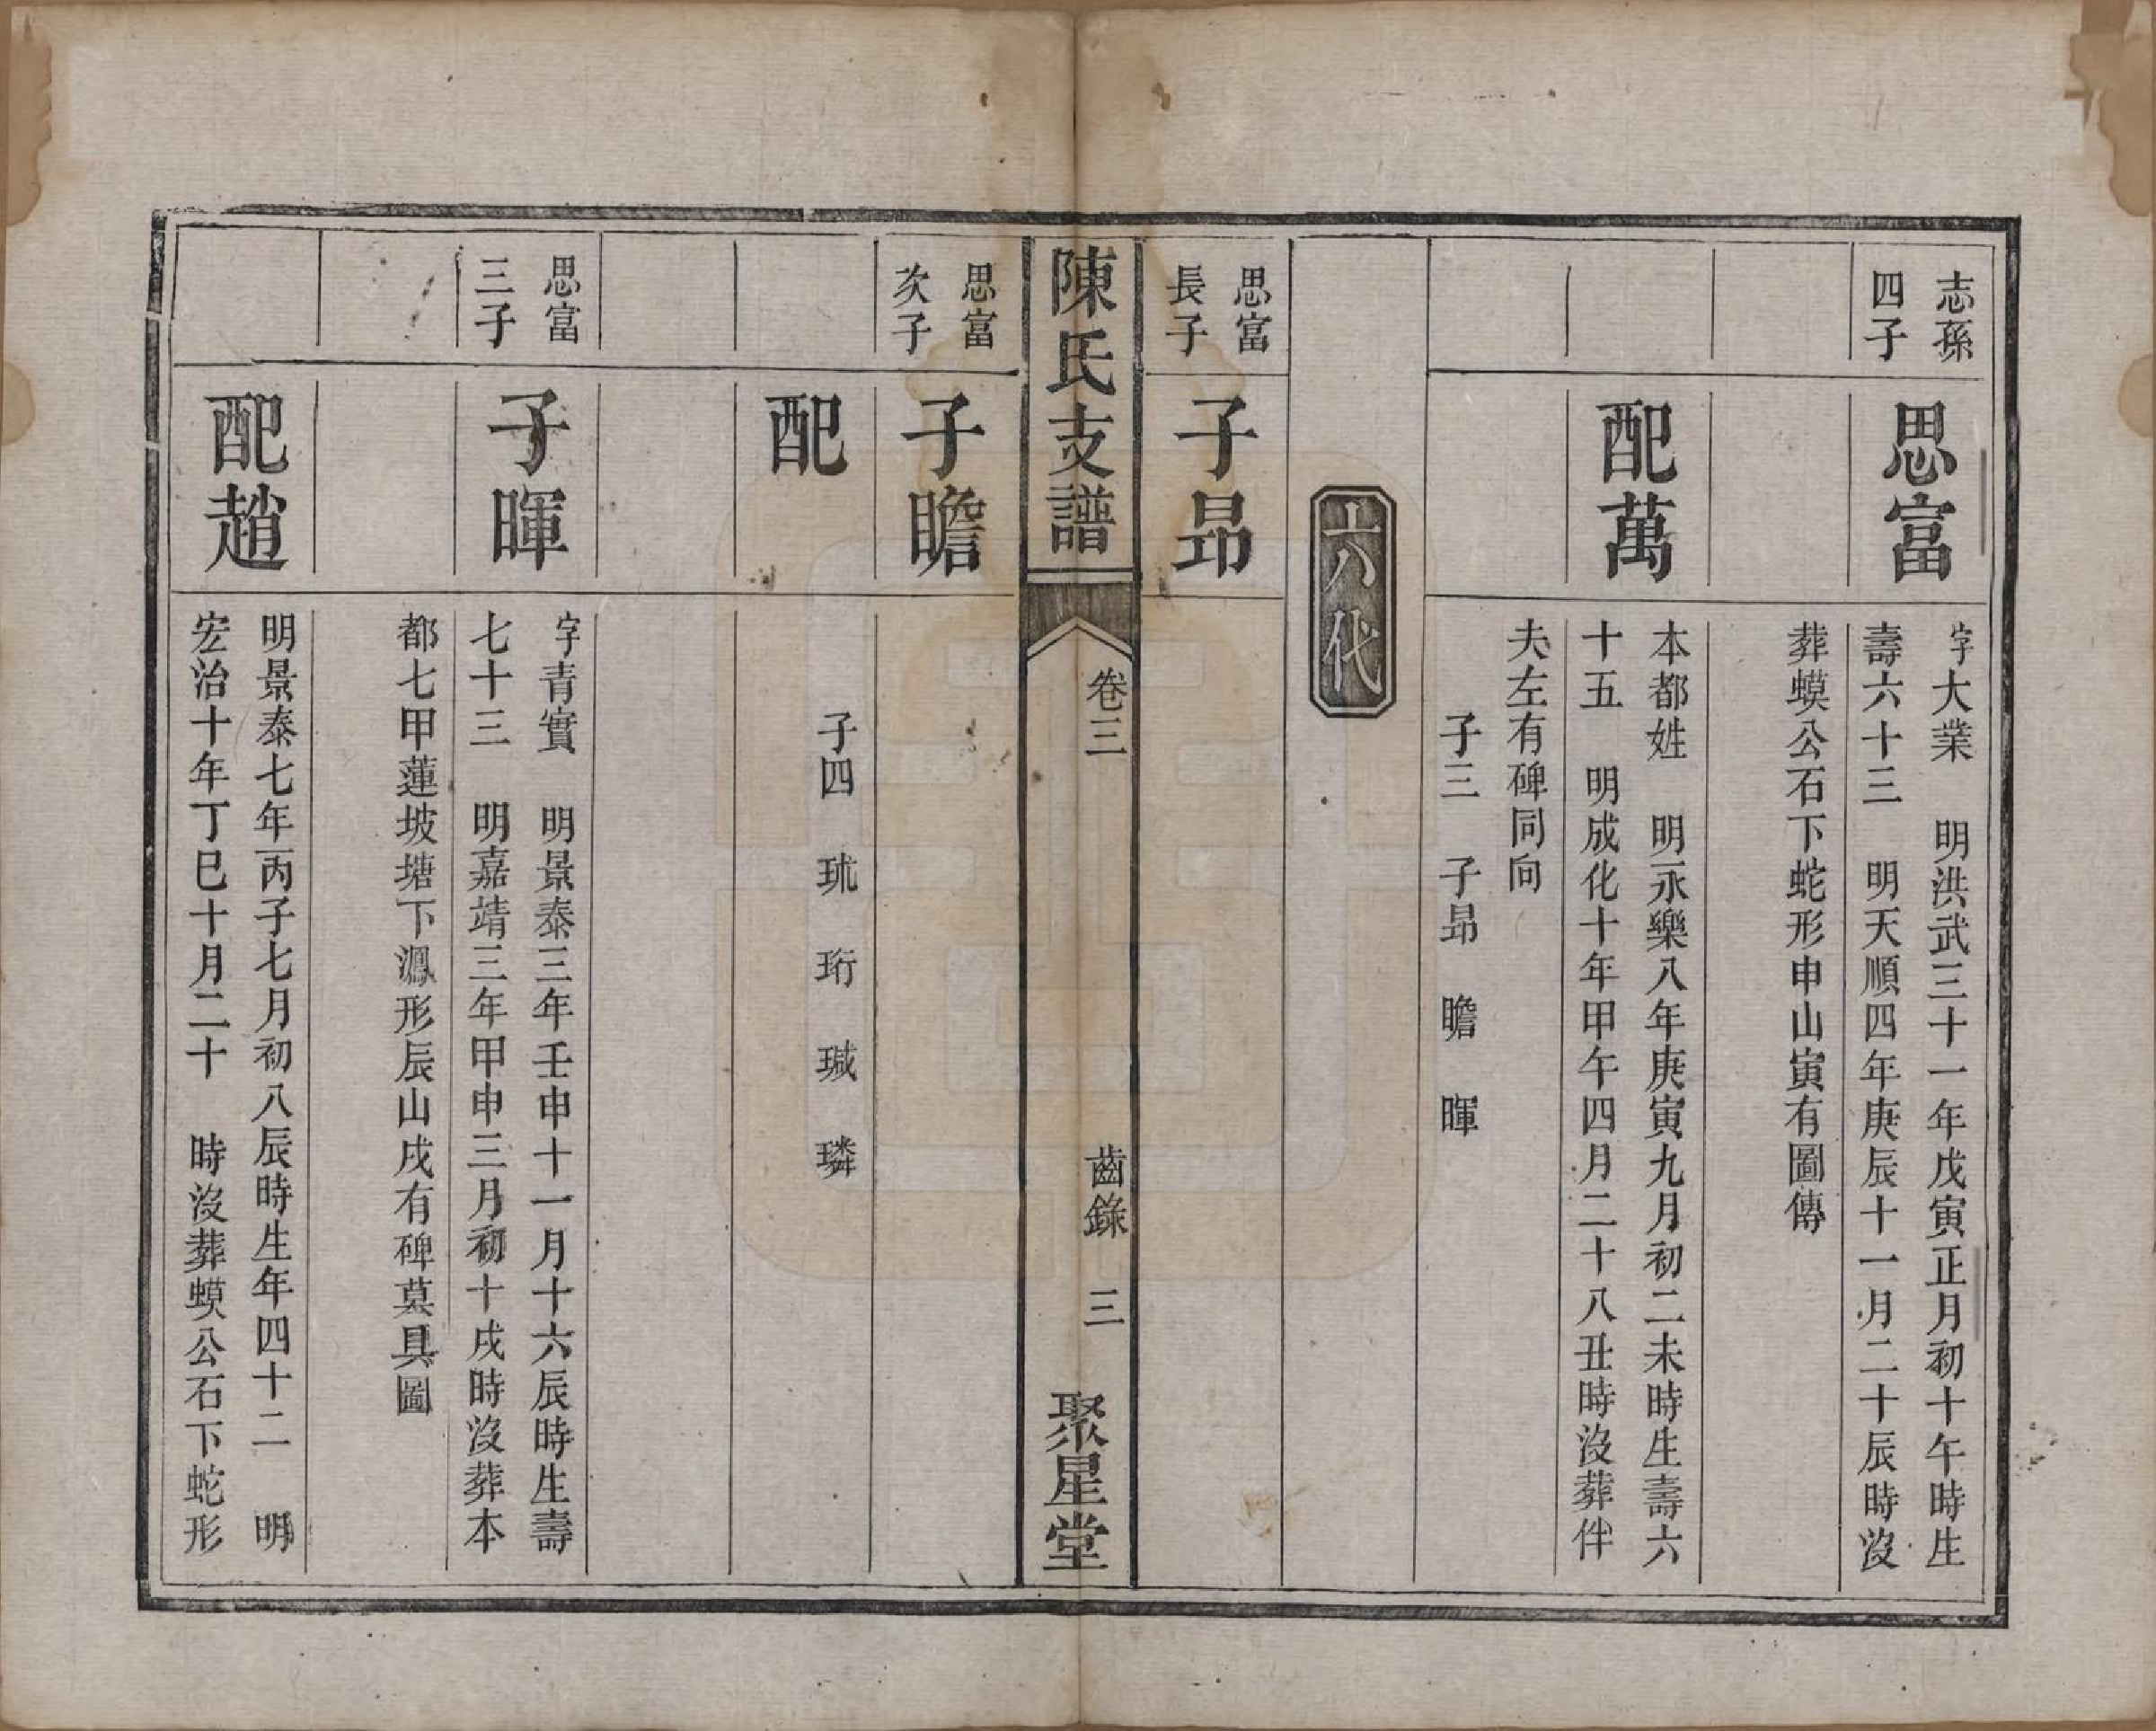 志孫
四子
思富
字大業　明洪武三十一年戊寅正月初十午時生
壽六十三　明天順四年庚辰十一月二十辰時沒
葬蟆公石下蛇形申山寅有圖傳
配萬
本都姓　明永樂八年庚寅九月初二未時生壽六
十五　明成化十年甲午四月二十八丑時沒葬伴
夫左有碑同向
子三　子昻　瞻　暉
六代
思富
長子
子昻
陳氏支譜
卷三
齒錄　三
聚星堂
思富
次子
子瞻
配
子四　珬　珩　瑊　璘
思富
三子
子暉
字青實　明景泰三年壬申十一月十六辰時生壽
七十三　明嘉靖三年甲申三月初十戌時沒葬本
都七甲蓮坡塘下鳳形辰山戌有碑墓具圖
配趙
明景泰七年丙子七月初八辰時生年四十二　明
宏治十年丁巳十月二十　時沒葬蟆公石下蛇形